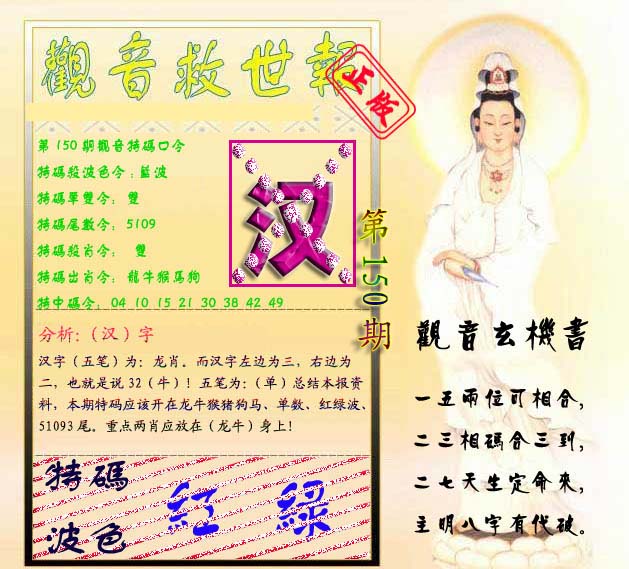 觀音救世報
正版
第150期觀音特碼口令
特碼殺波色令:藍波
特碼單雙令: 雙
特碼尾數令: 5109
特碼殺肖令: 雙
特碼出肖令: 龍牛猴馬狗
特中碼令: 04 10 15 21 30 38 42 49
汉
第150期
分析:(汉)字
汉字(五笔)为:龙肖。而汉字左边为三,右边为
二,也就是说32(牛)!五笔为:(单)总结本报资
料,本期特码应该开在龙牛猴猪狗马、单数、红绿波、
51093尾。重点两肖应放在(龙牛)身上!
特碼
波色
紅 綠
觀音玄機書
一五兩位可相合,
二三相碼合三到,
二七天生定命來,
主明八字有代破。